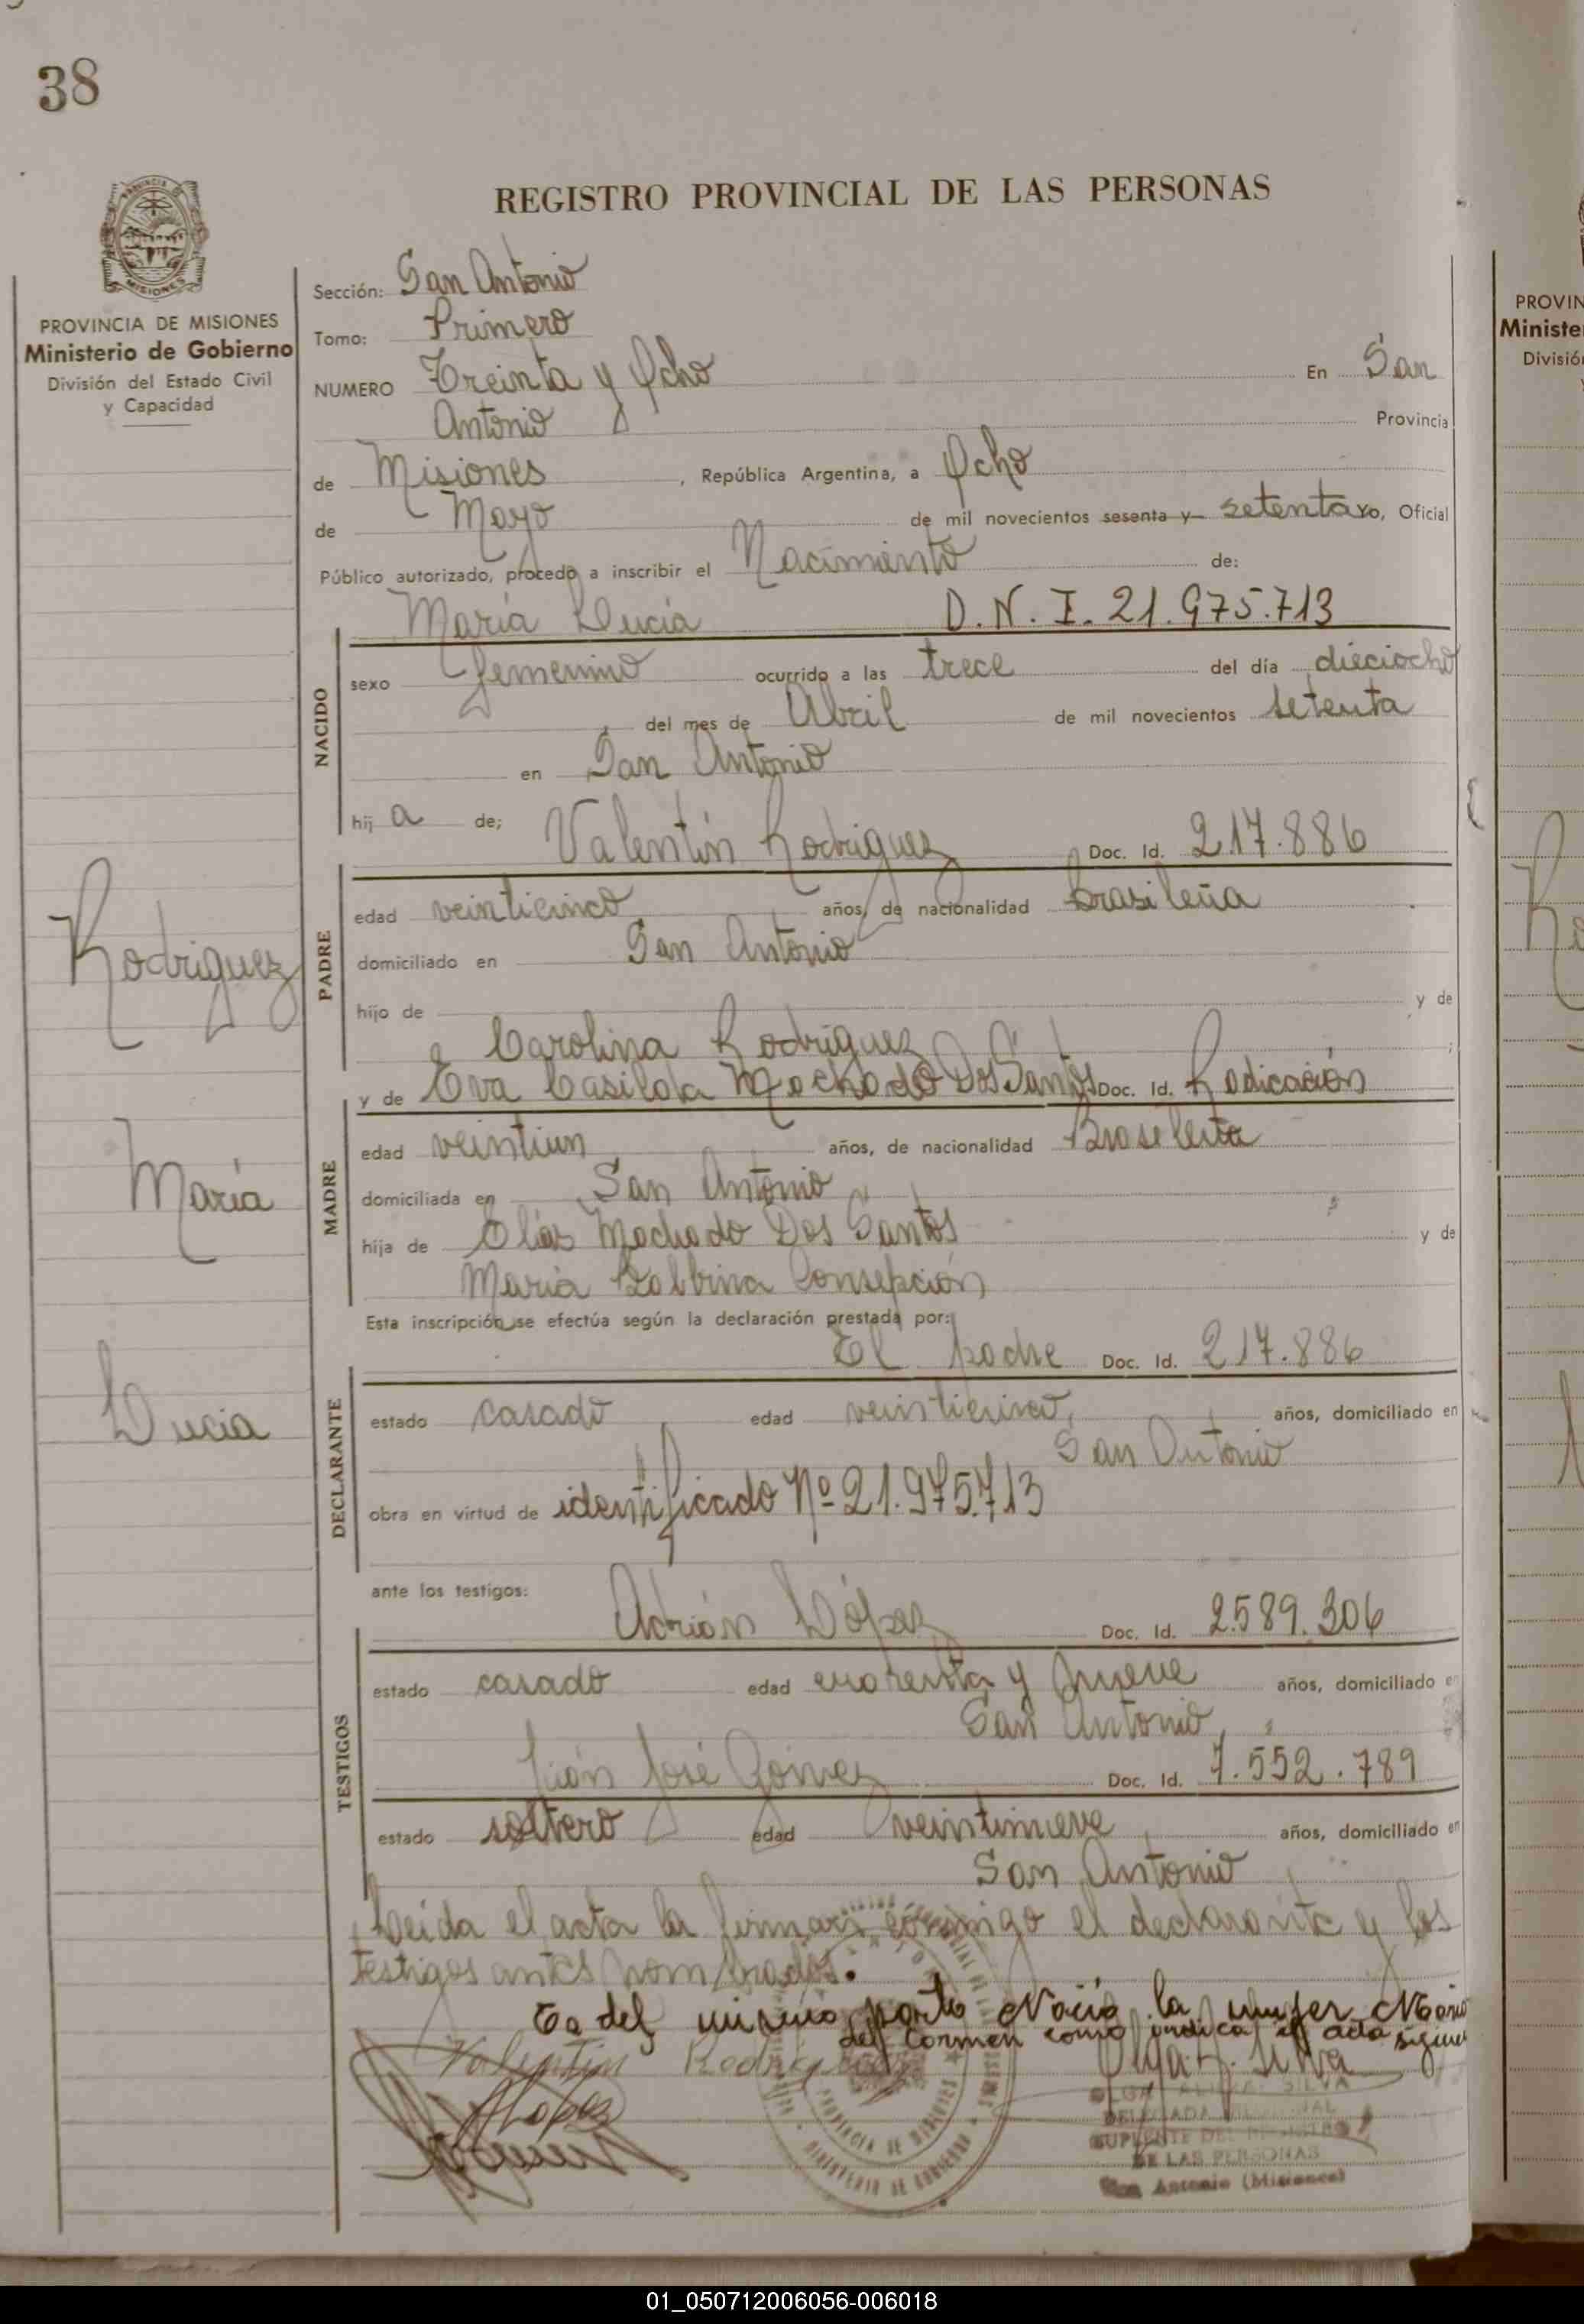 38
REGISTRO PROVINCIAL DE LAS PERSONAS
PROVINCIA DE MISIONES
Ministerio de Gobierno
División del Estado Civil
y Capacidad
Sección: San Antonio
Tomo: Primero
NUMERO Treinta y Ocho En San
Antonio Provincia
de Misiones, República Argentina, a Ocho
de Mayo de mil novecientos sesenta y setenta yo, Oficial
Público autorizado, procedo a inscribir el Nacimiento de:
María Lucia D.N.I. 21.975.713
NACIDO
sexo femenino ocurrido a las trece del día dieciocho
del mes de Abril de mil novecientos setenta
en San Antonio
hij a de; Valentín Rodriguez Doc. Id. 217.886
PADRE
edad veinticinco años, de nacionalidad brasileña
domiciliado en San Antonio
hijo de y de
Carolina Rodríguez;
y de Eva Casilda Machado Dos Santos Doc. Id. Radicación
MADRE
edad veintiun años, de nacionalidad Brasileña
domiciliada en San Antonio
hija de Elías Machado Dos Santos y de
María Balbina Consepción
Esta inscripción se efectúa según la declaración prestada por:
El padre Doc. Id. 217.886
DECLARANTE
estado casado edad veinticinco, años, domiciliado en
San Antonio
obra en virtud de identificado Nº 21.975.713
ante los testigos:
Adrián López Doc. Id. 2.589.306
TESTIGOS
estado casado edad cuarenta y nueve años, domiciliado en
San Antonio,
Juán José Gómez Doc. Id. 7.552.789
estado soltero edad veintinueve años, domiciliado en
San Antonio
Leida el acta la firman conmigo el declarante y los
testigos antes nombrados.
del mismo parto Nació la mujer María
del Carmen como indica el acta
Valentin Rodriguez
ALopez
Olga A. Silva
SILVA
DELEGADA
SUPLENTE DEL REGISTRO
DE LAS PERSONAS
San Antonio (Misiones)
PROVINCIA DE MISIONES
MINISTERIO DE GOBIERNO
Rodriguez
María
Lucia
PROVIN
Ministe
Divisió
01_050712006056-006018